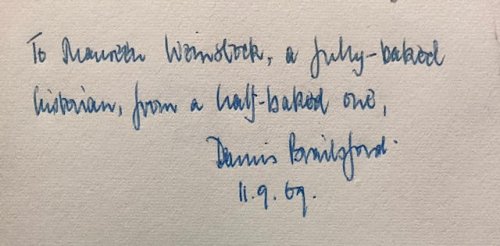 To Maureen Weinstock, a fully-baked
historian, from a half-baked one,
Dennis Brailsford.
11.9.69.